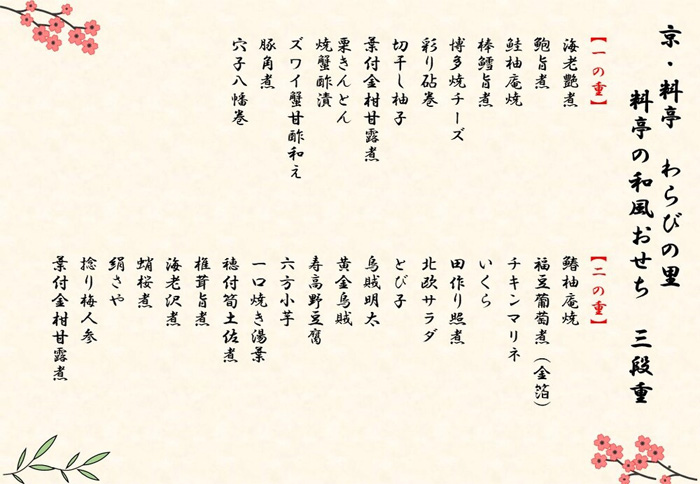 京・料亭　わらびの里
料亭の和風おせち　三段重
【一の重】
海老艶煮
鮑旨煮
鮭柚庵焼
棒鱈旨煮
博多焼チーズ
彩り砧巻
切干し柚子
葉付金柑甘露煮
栗きんとん
焼蟹酢漬
ズワイ蟹甘酢和え
豚角煮
穴子八幡巻
【二の重】
鰆柚庵焼
福豆葡萄煮（金箔）
チキンマリネ
いくら
田作り照煮
北欧サラダ
とび子
烏賊明太
黄金烏賊
寿高野豆腐
六方小芋
一口焼き湯葉
穂付筍土佐煮
椎茸旨煮
海老沢煮
蛸桜煮
絹さや
捻り梅人参
葉付金柑甘露煮